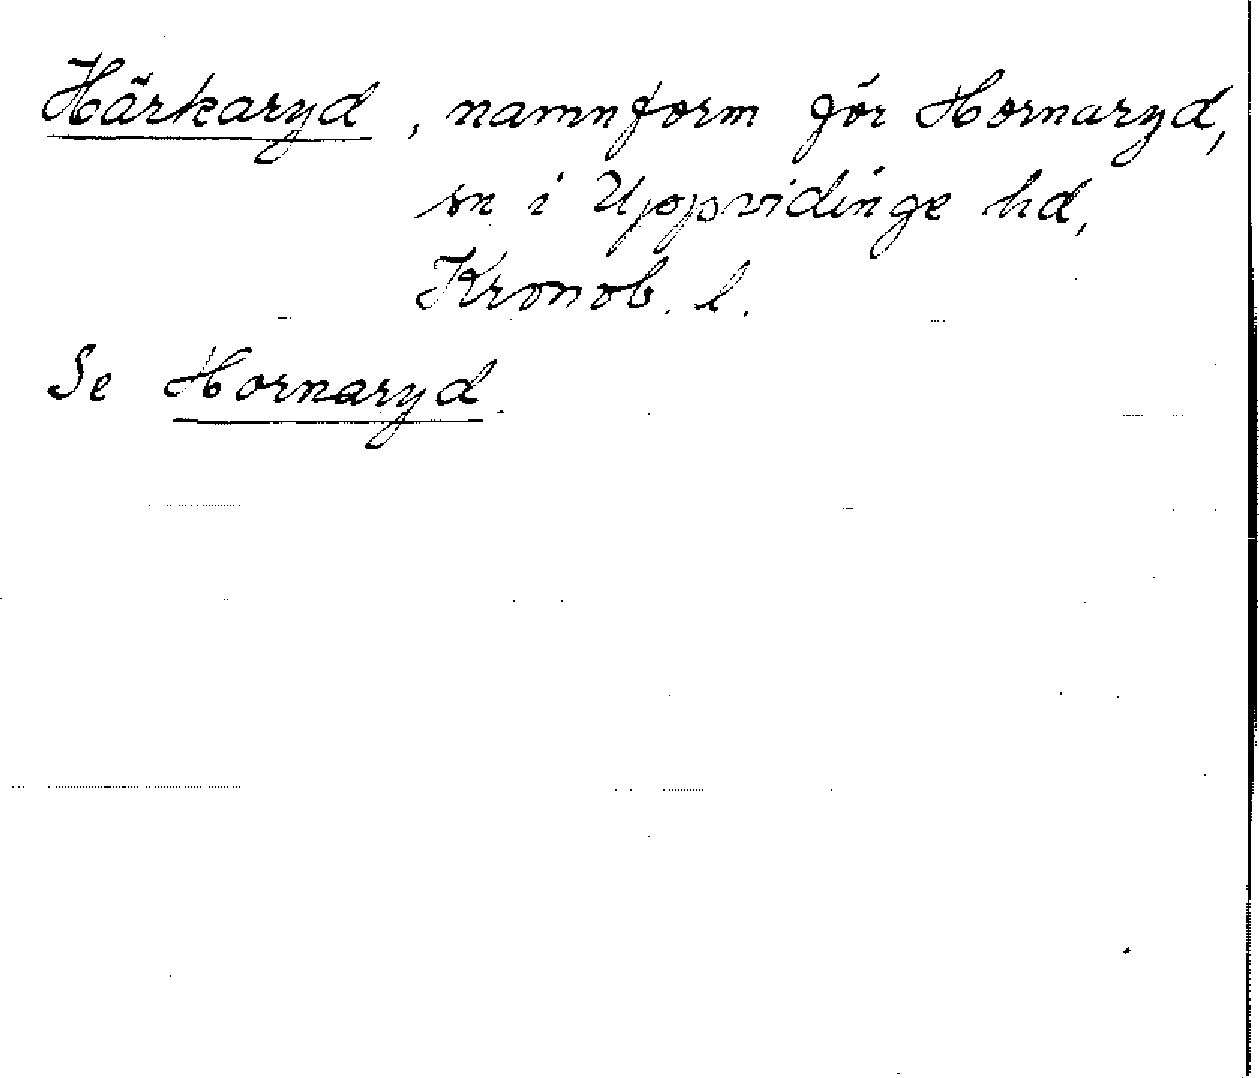 Härkaryd, namnform för Hornaryd,
sn i Uppvidinge hd,
Kronob. l.
Se Hornaryd.